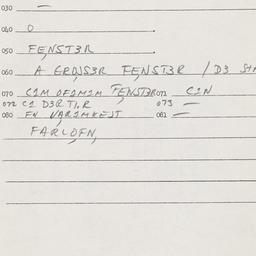 030 —
040 O .
050 FENST3R .
060 A GROJS3R FENST3R / D3
070 C1M OFOM1M FENST3R 071 C1N
072 C1 D3R TI,R 073 —
080 FN VAR1MKEJT 081 —
FARLOFN,